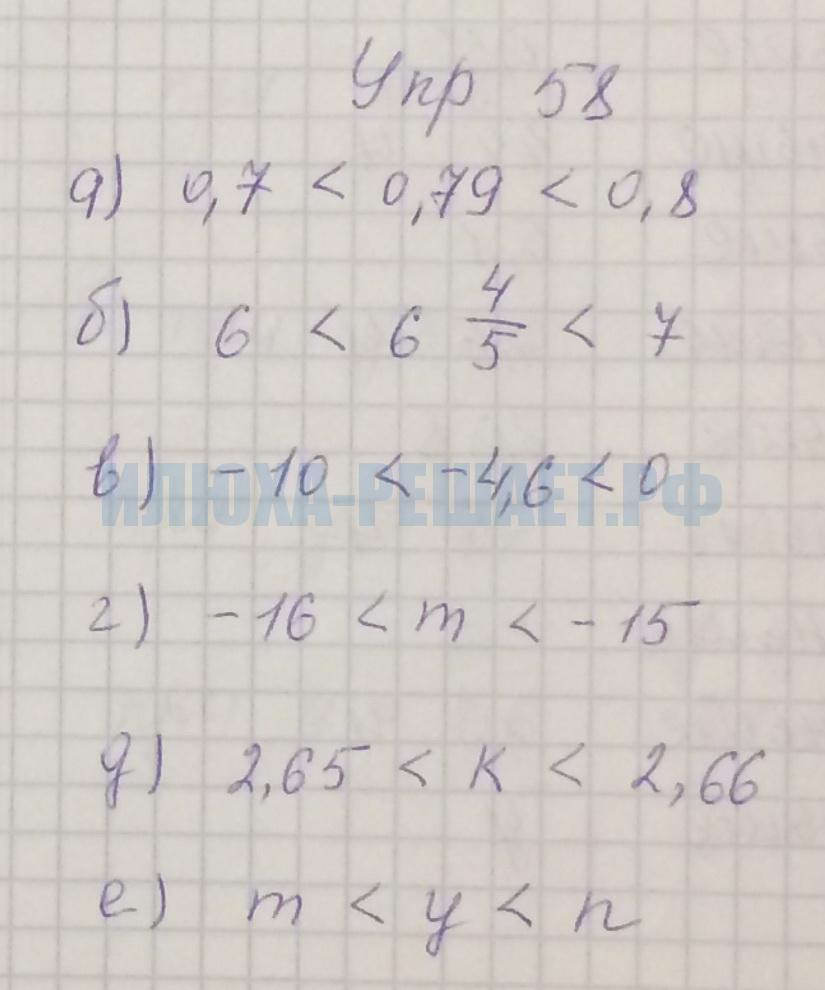 Упр 58
а) 0,7 < 0,79 < 0,8
б) 6 < 6 4/5 < 7
в) -10 < -4,6 < 0
ИЛЮХА-РЕШАЕТ.РФ
г) -16 < m < -15
д) 2,65 < К < 2,66
е) m < y < n